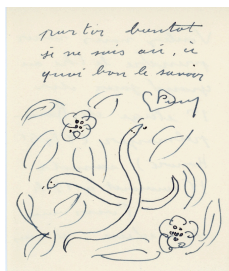 partir bientot
je ne sais où, à
quoi bon le savoir